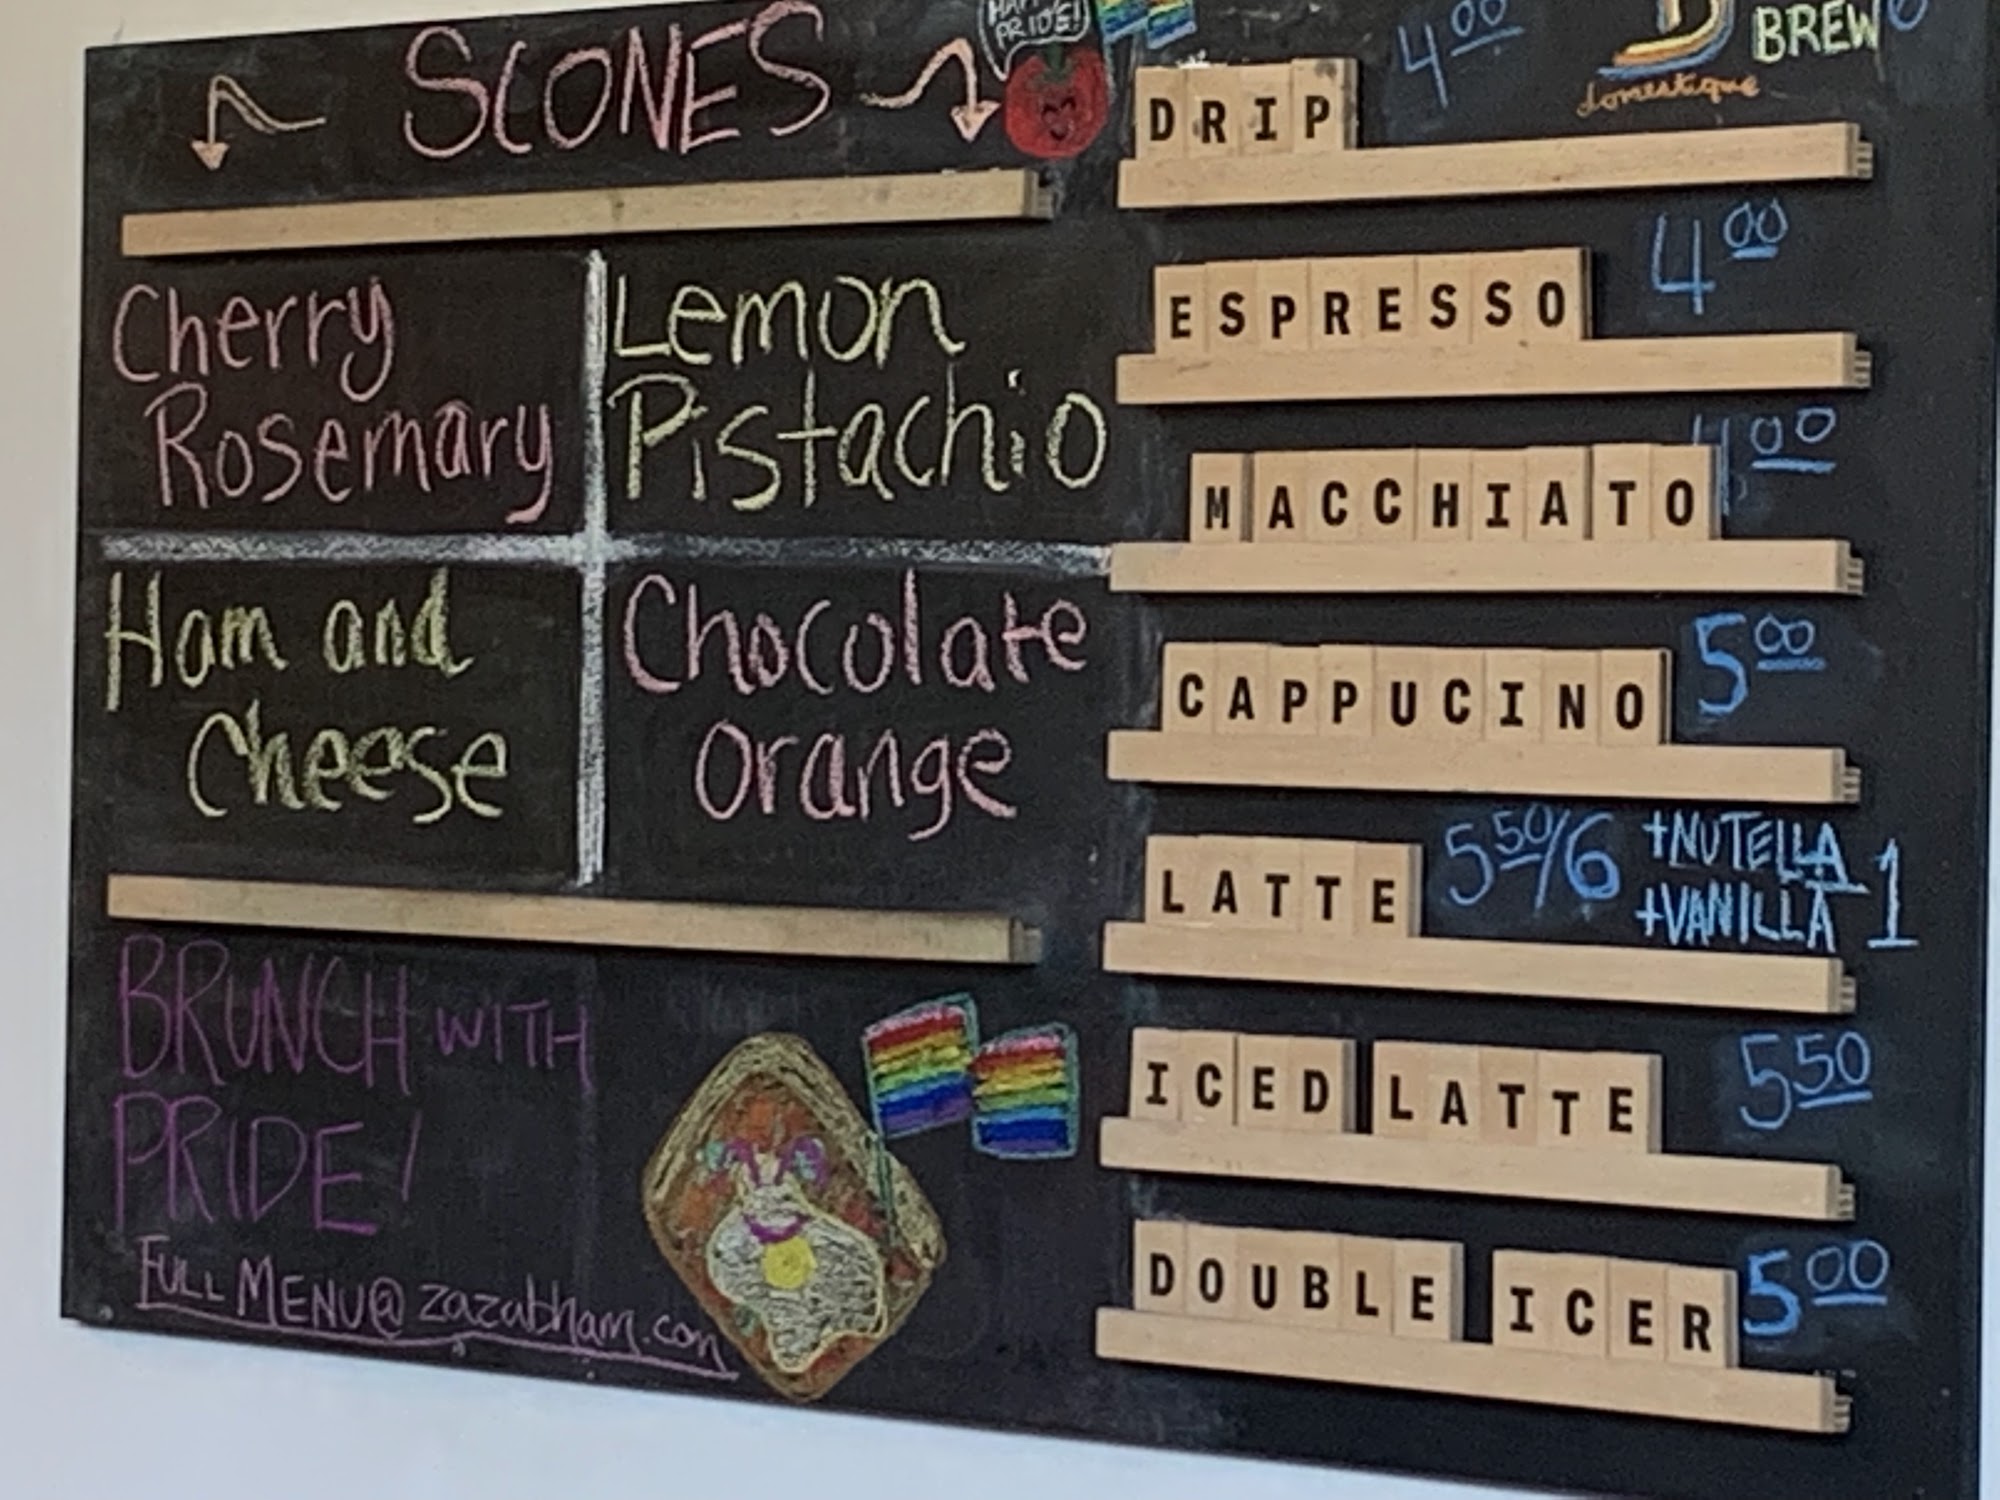 SCONES
PRIDE!
Cherry
Rosemary
Lemon
Pistachio
Ham and
Cheese
Chocolate
Orange
BRUNCH WITH
PRIDE!
FULL MENU@ zazabham.com
BREW
domestique
DRIP 4.00
ESPRESSO 4.00
MACCHIATO 4.00
CAPPUCINO 5.00
LATTE 5.50/6 +NUTELLA
+VANILLA 1
ICED LATTE 5.50
DOUBLE ICER 5.00